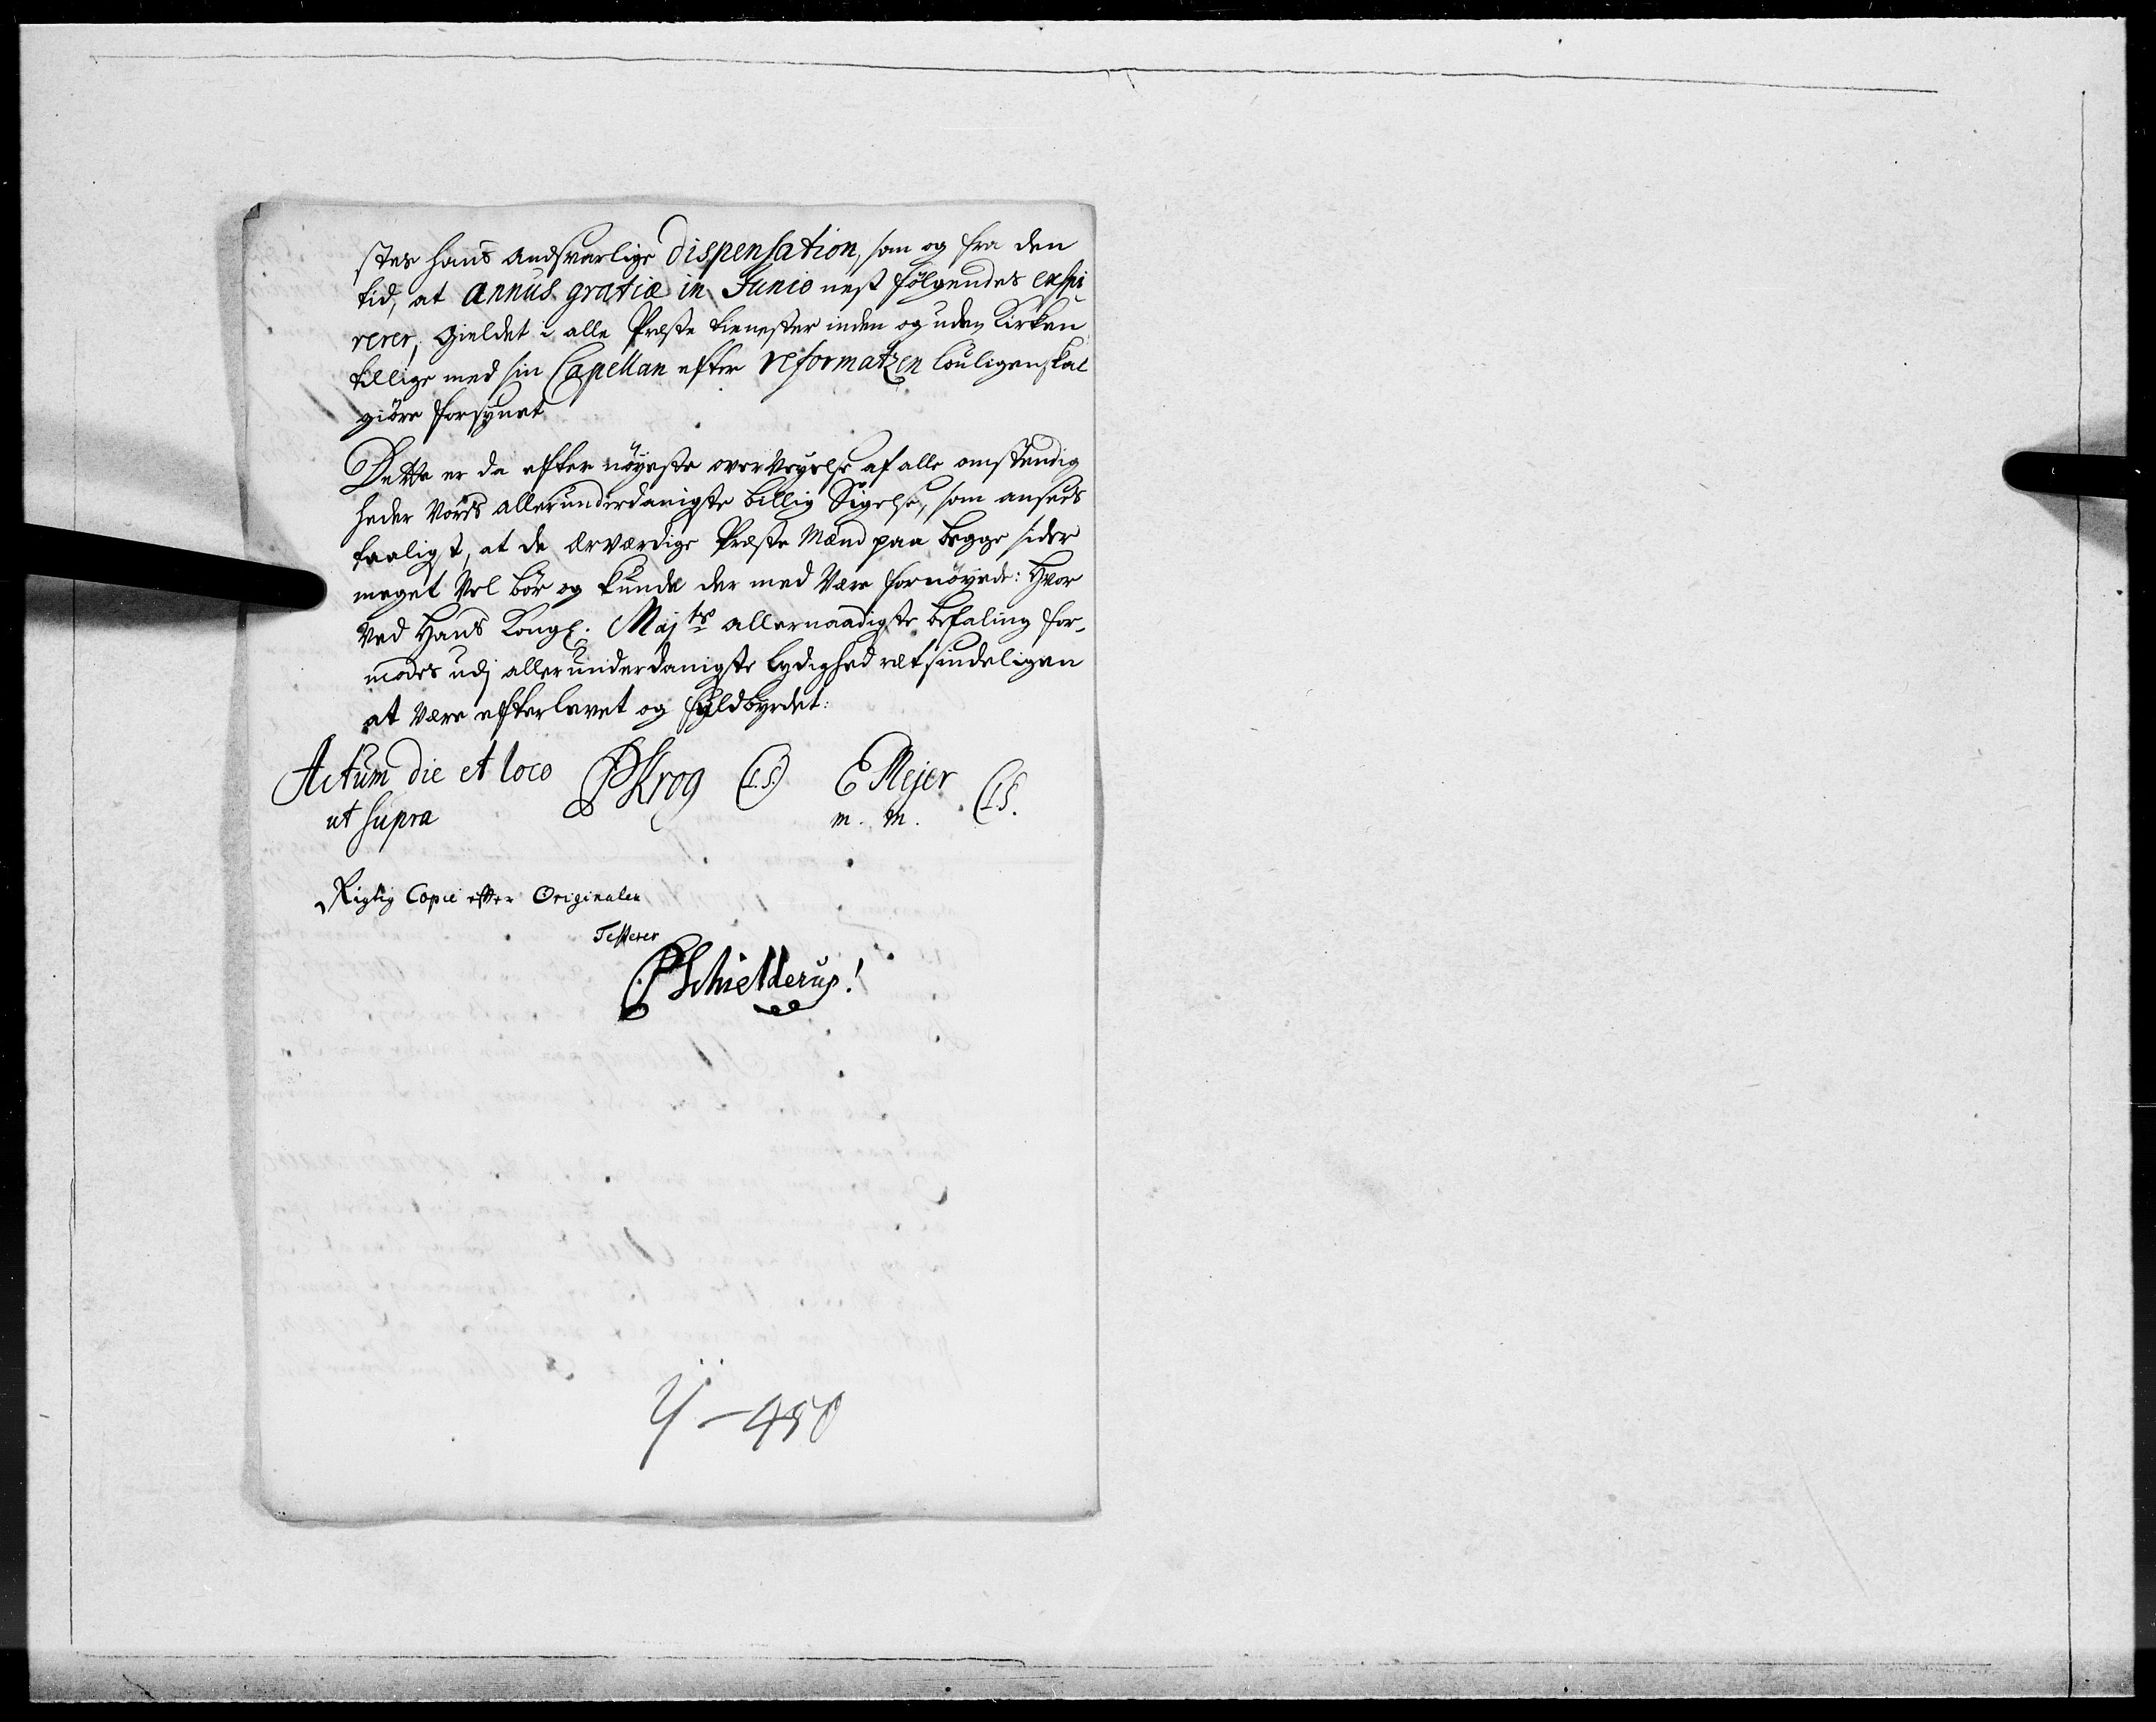 stes hans Andsvarlige dispensation, som og fra den
tid, at annus gratiæ in Junio nest følgendes expi
rerer, gieldet i alle Præste tienester inden og uden Kirken
tillige med sin Capellan efter reformatzen louligen skal
giøre forsynet
Dette er da efter nøyeste overveyelse af alle omstendig
heder vores allerunderdanigste billig Sigelse, som ansees
taaligt, at de ærværdige Præste Mænd paa begge sider
meget vel bør og kunde der med være fornøyede: Hvor
ved Hans Kongl. Majts allernaadigste befaling for-
modes udj allerunderdanigste lydighed retsindeligen
at være efterlevet og fuldbyrdet:
Actum die et loco PKrog (L.S.) EMejer (LS.
ut supra m. m.
Rigtig Copie efter Originalen
Testerer
PSchielderup!
4-450